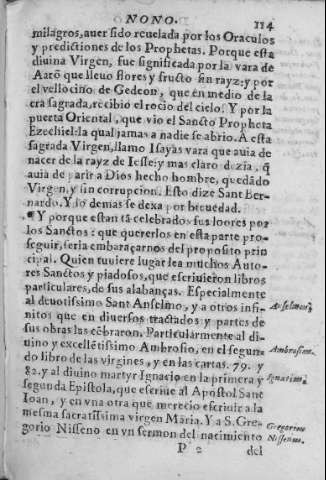 NONO. 114
milagros, auer sido reuelada por los Oraculos
y predictiones de los Prophetas. Porque esta
diuina Virgen, fue significada por la vara de
Aarõ que lleuo flores y fructo sin rayz: y por
el vellocino de Gedeon, que en medio de la
era sagrada, recibio el rocio del cielo. Y por la
puerta Oriental, que vio el Sancto Propheta
Ezechiel: la qual jamas a nadie se abrio. A esta
sagrada Virgen, llamo Isayas vara que auia de
nacer de la rayz de Iesse: y mas claro dezia, q̃
auia de parir a Dios hecho hombre, quedãdo
Virgen, y sin corrupcion. Esto dize Sant Ber-
nardo. Y lo demas se dexa por breuedad.
¶ Y porque estan tã celebrados sus loores por
los Sanctos: que quererlos en esta parte pro-
seguir, seria embaraçarnos del proposito prin
cipal. Quien tuuiere lugar lea muchos Auto-
res Sanctos y piadosos, que escriuieron libros
particulares, de sus alabanças. Especialmente
al deuotissimo Sant Anselmo, y a otros infi-
nitos que en diuersos tractados y partes de
sus obras la celebraron. Particularmente al di-
uino y excellẽtissimo Ambrosio, en el segun-
do libro de las virgines, y en las cartas. 79. y
82. y al diuino martyr Ignacio en la primera y
segunda Epistola, que escriue al Apostol Sant
Ioan, y en vna otra que merecio escriuir a la
mesma sacratissima virgen Maria. Y a S. Gre-
gorio Nisseno en vn sermon del nacimiento
P 2 del
Anselmus.
Ambrosius.
Ignatius.
Gregorius
Nissenus.